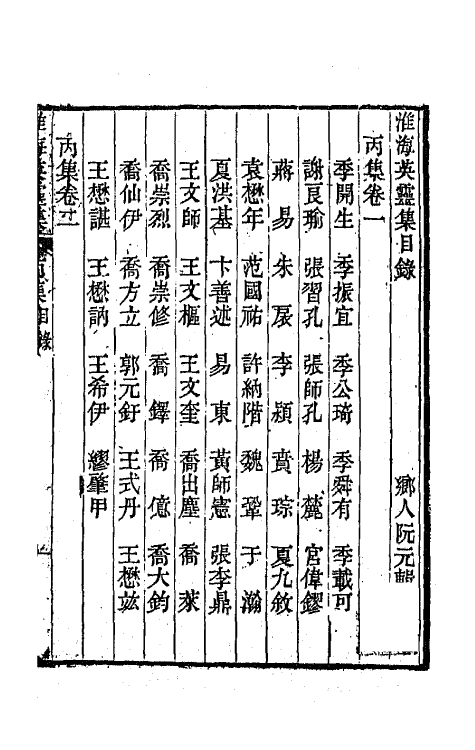 淮海英靈集目錄 鄉人阮元輯
丙集卷一
季開生 季振宜 季公琦 季舜有 季載可
謝良瑜 張習孔 張師孔 楊麓 宮偉鏐
蔣易 朱扆 李穎 賁琮 夏九敘
袁懋年 范國祐 許納陛 魏鞏 于瀚
夏洪基 卞善述 易東 黃師憲 張李鼎
王文師 王文樞 王文奎 喬出塵 喬萊
喬崇烈 喬崇修 喬鐸 喬億 喬大鈞
喬仙伊 喬方立 郭元釪 王式丹 王懋竑
王懋諶 王懋訥 王希伊 繆肇甲
丙集卷二
淮海英靈集 丙集目錄 一